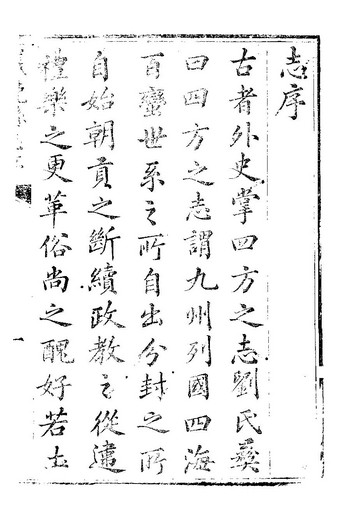 志序
古者外史掌四方之志劉氏彞
曰四方之志謂九州列國四海
百蠻世系之所自出分封之所
自始朝貢之斷續政教之從違
禮樂之更革俗尚之醜好若土